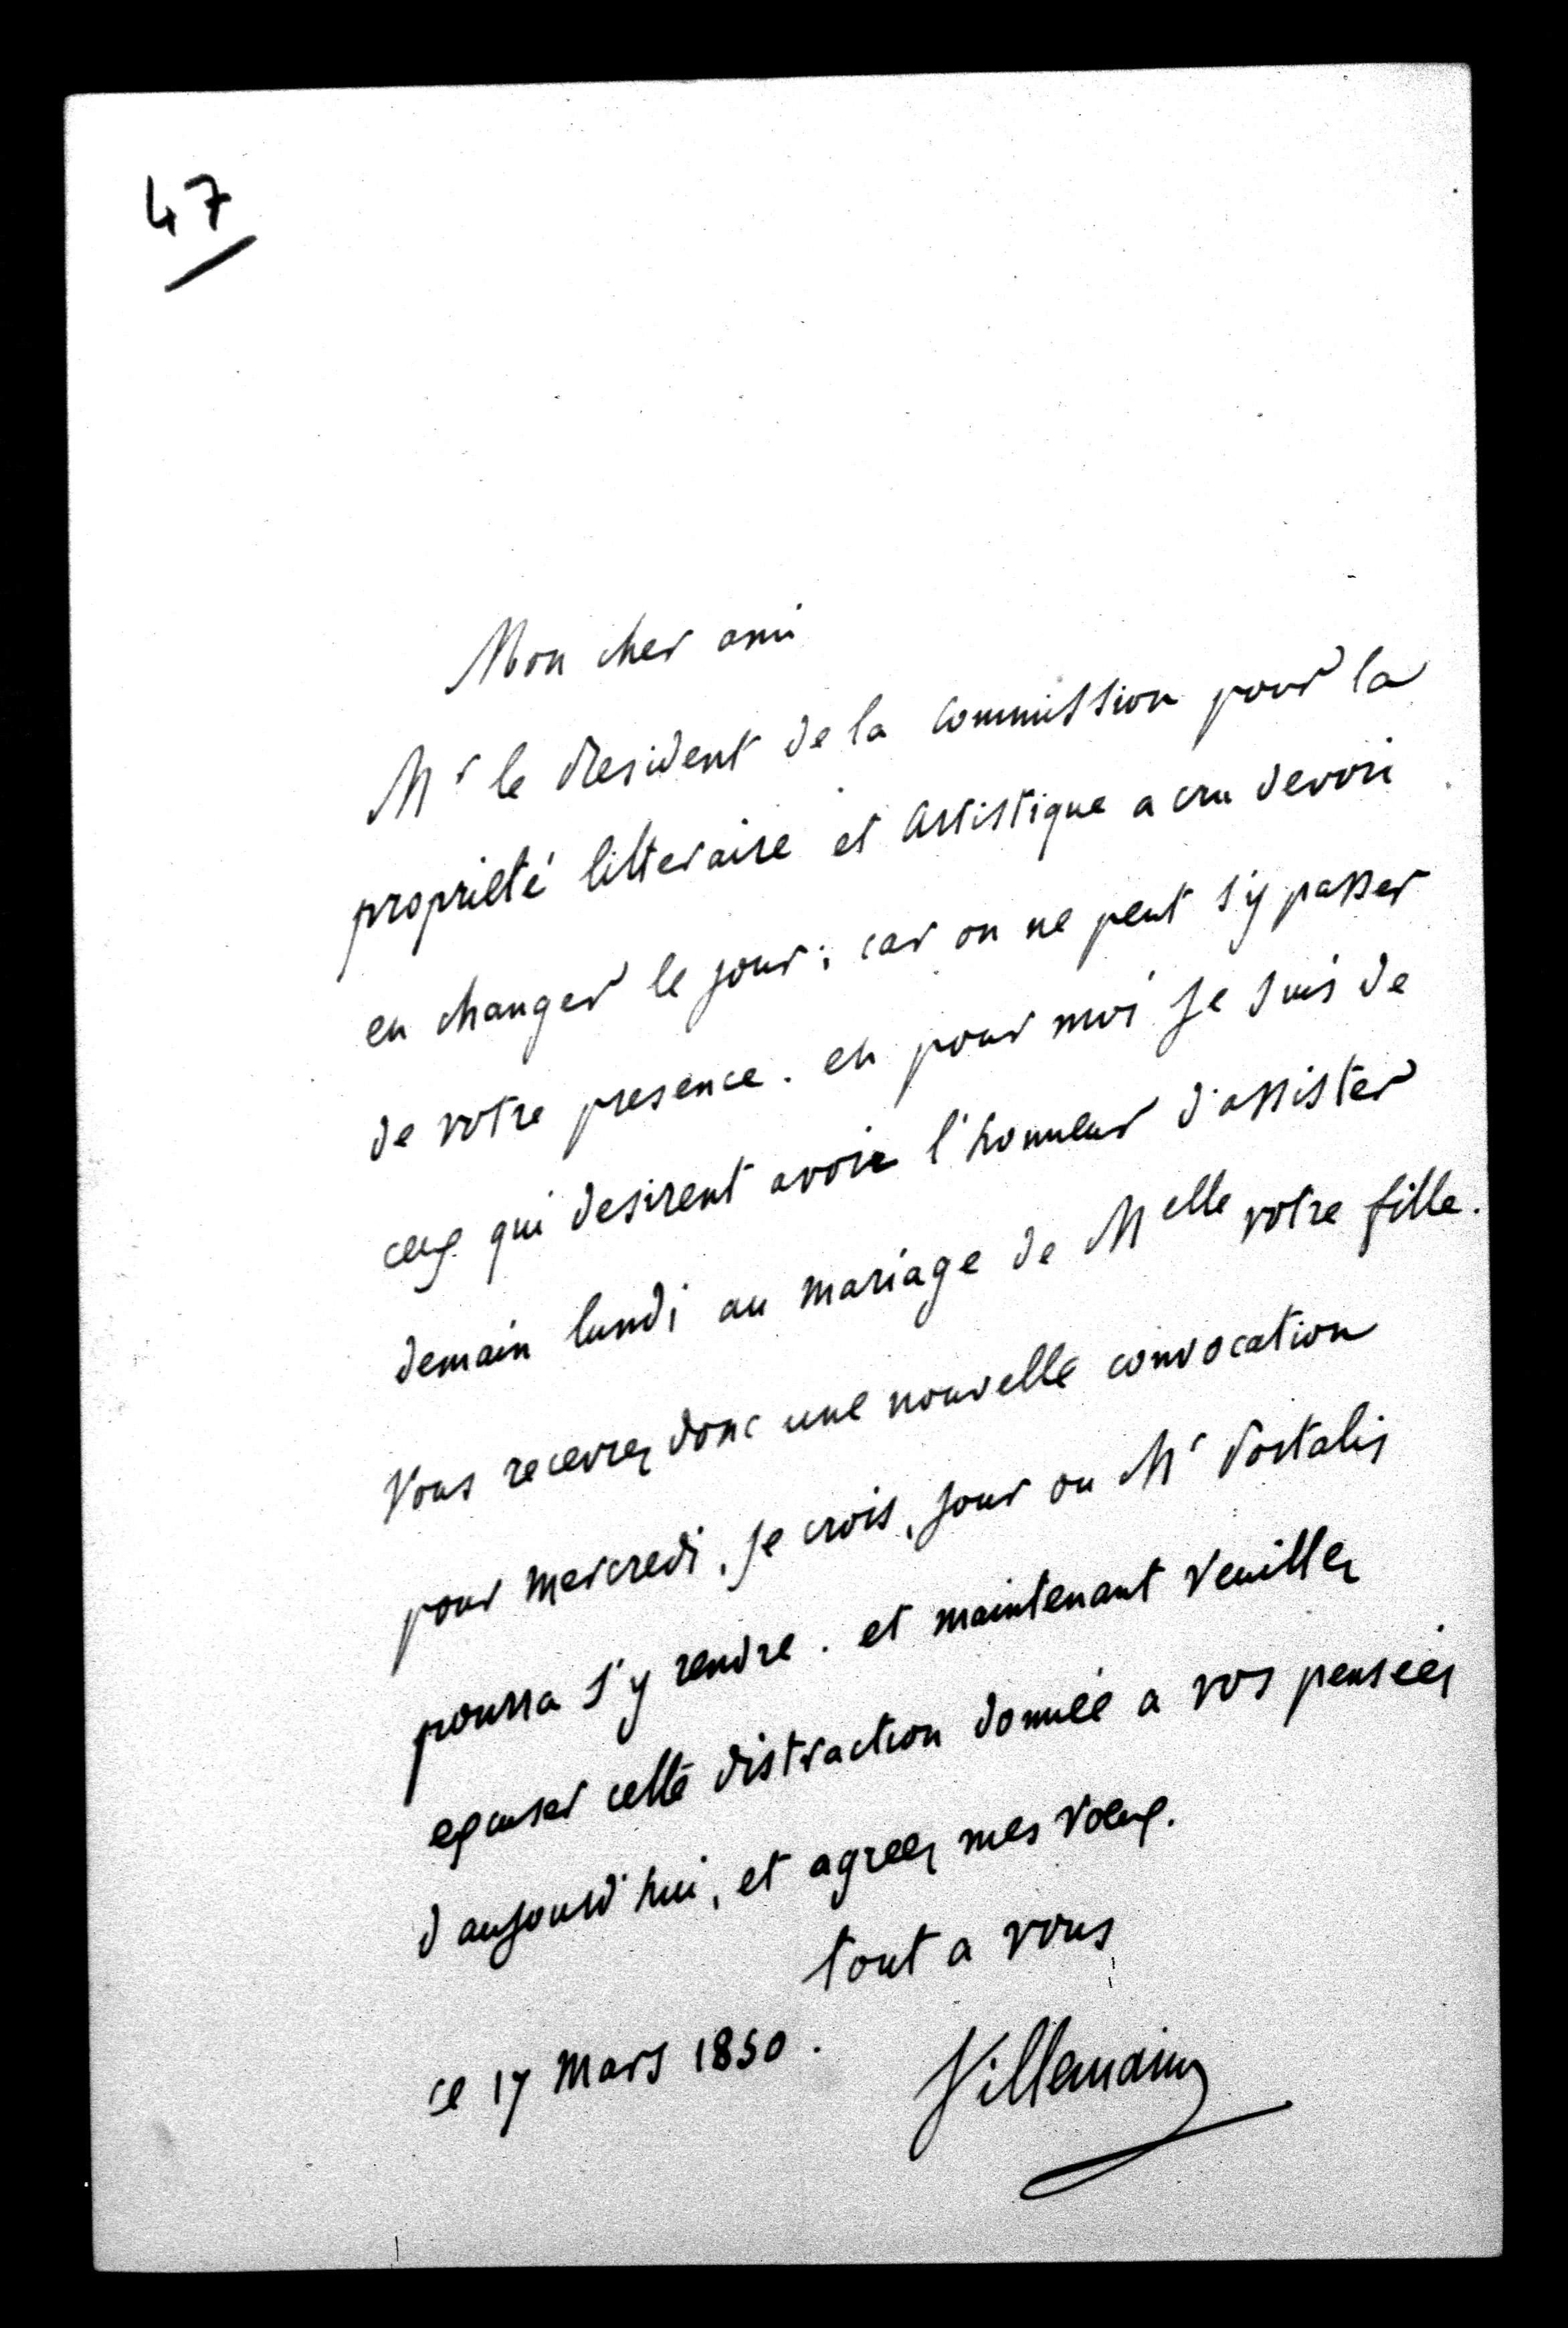 47
Mon cher ami
Mr le President de la Commission pour la
proprieté litteraire et Artistique a cru devoir
en changer le jour ; car on ne peut s'y passer
de votre presence. en pour moi je suis de
ceux qui desirent avoir l'honneur d'assister
demain lundi au mariage de Melle votre fille.
Vous recevrez donc une nouvelle convocation
pour mercredi, je crois, jour ou Mr Portalis
pourra s'y rendre. et maintenant Veuillez
excuser cette distraction donnée a vos pensées
d'aujourd'hui, et agreez mes Voeux.
tout a vous
ce 17 Mars 1850.
Villemain